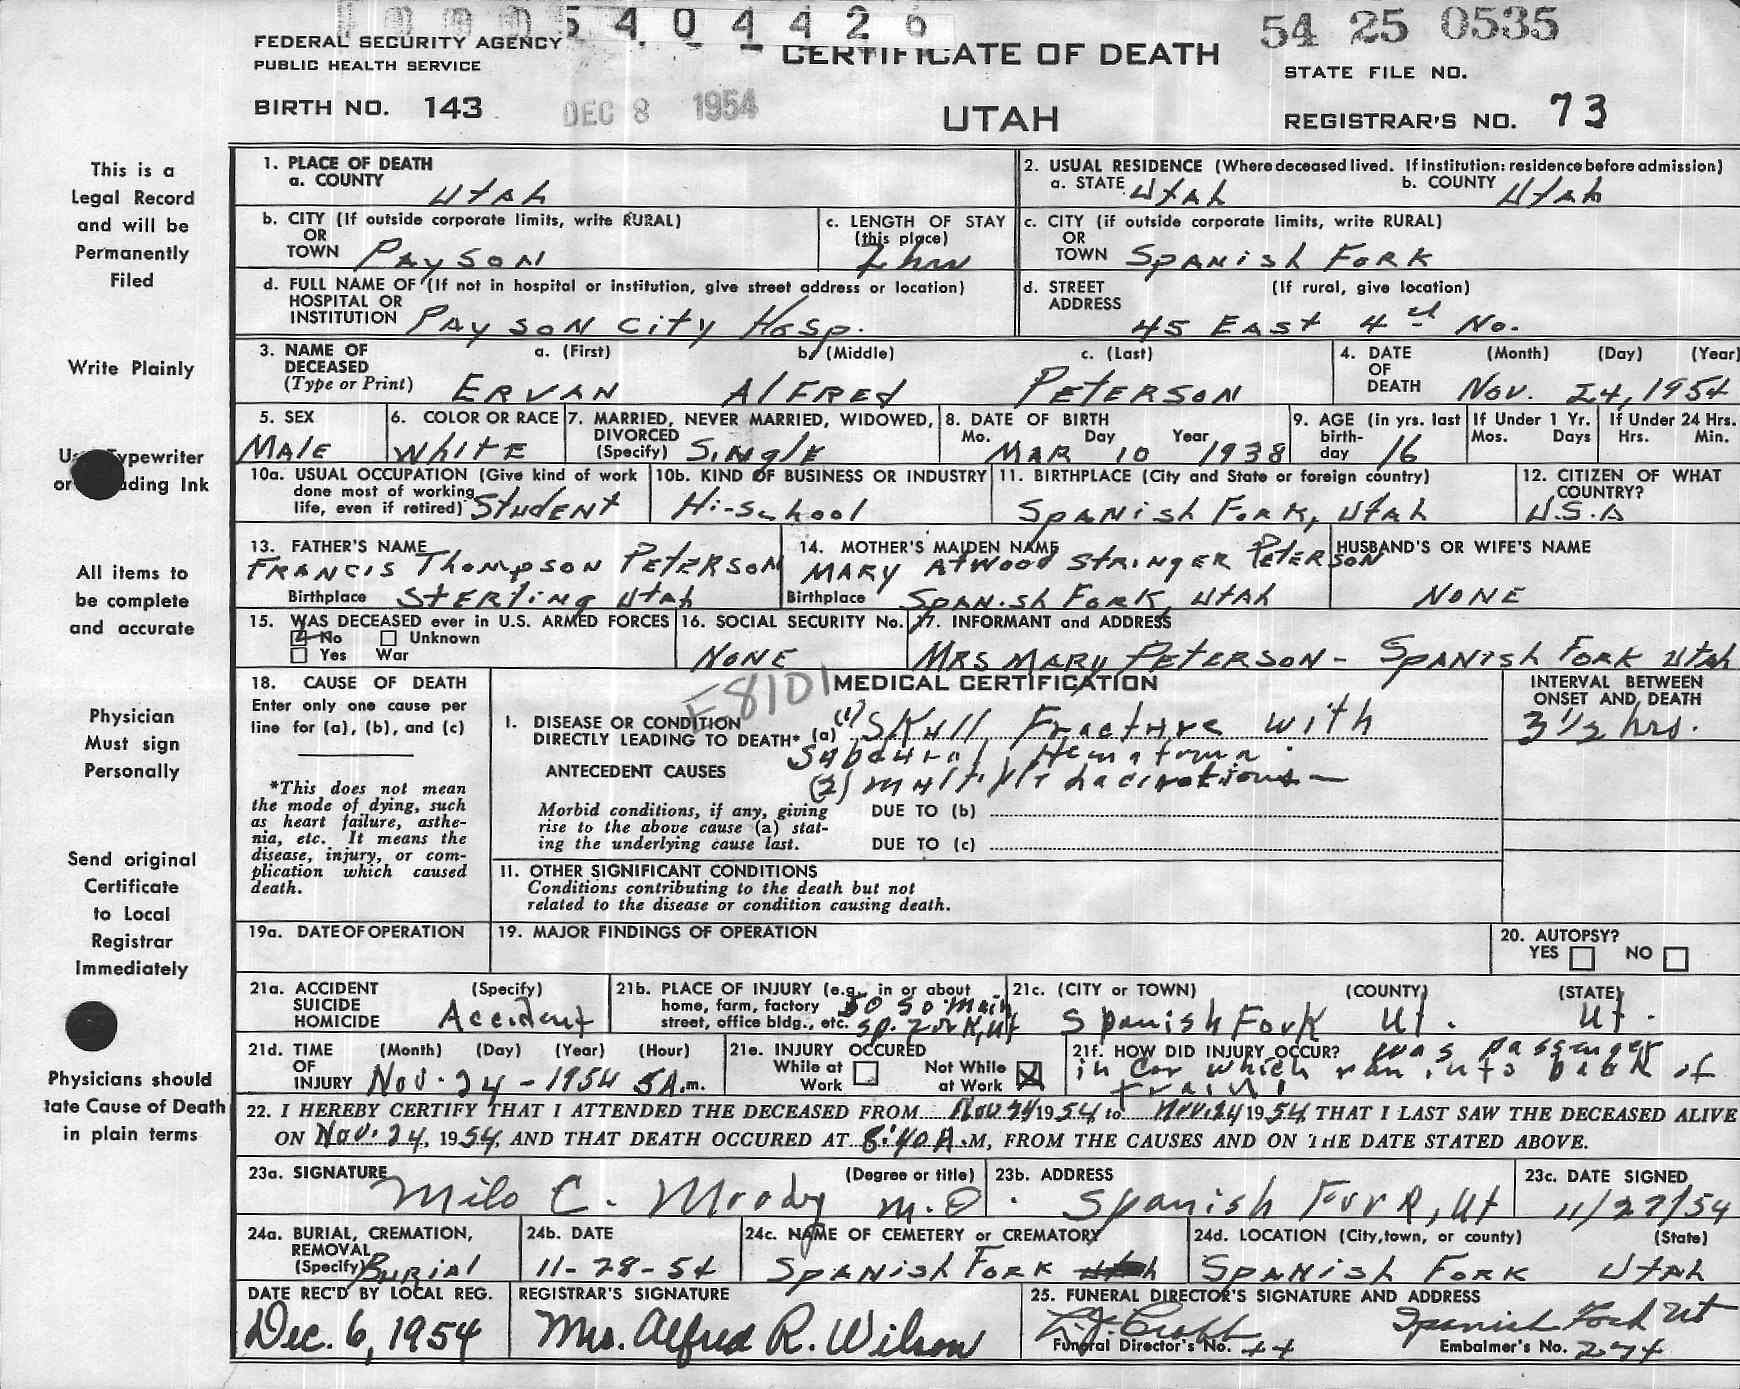 5 4 0 4 4 2 6
54 25 0535
FEDERAL SECURITY AGENCY
PUBLIC HEALTH SERVICE
CERTIFICATE OF DEATH
STATE FILE NO.
BIRTH NO. 143
DEC 8 1954
UTAH
REGISTRAR'S NO. 73
This is a
Legal Record
and will be
Permanently
Filed
Write Plainly
Typewriter
or ding Ink
All items to
be complete
and accurate
Physician
Must sign
Personally
Send original
Certificate
to Local
Registrar
Immediately
Physicians should
tate Cause of Death
in plain terms
1. PLACE OF DEATH
a. COUNTY Utah
2. USUAL RESIDENCE (Where deceased lived. If institution: residence before admission)
a. STATE Utah b. COUNTY Utah
b. CITY (If outside corporate limits, write RURAL)
OR
TOWN Payson
c. LENGTH OF STAY
(this place)
2 hrs
c. CITY (if outside corporate limits, write RURAL)
OR
TOWN Spanish Fork
d. FULL NAME OF (If not in hospital or institution, give street address or location)
HOSPITAL OR
INSTITUTION Payson City Hosp.
d. STREET (If rural, give location)
ADDRESS
45 East 4th No.
3. NAME OF a. (First) b. (Middle) c. (Last)
DECEASED
(Type or Print) ERVAN AlFRED PETERSON
4. DATE (Month) (Day) (Year)
OF
DEATH Nov. 24, 1954
5. SEX
Male
6. COLOR OR RACE
White
7. MARRIED, NEVER MARRIED, WIDOWED,
DIVORCED
(Specify) Single
8. DATE OF BIRTH
Mo. Day Year
MAR 10 1938
9. AGE (in yrs. last
birth-
day 16
If Under 1 Yr.
Mos. Days
If Under 24 Hrs.
Hrs. Min.
10a. USUAL OCCUPATION (Give kind of work
done most of working
life, even if retired) Student
10b. KIND OF BUSINESS OR INDUSTRY
Hi-School
11. BIRTHPLACE (City and State or foreign country)
Spanish Fork, Utah
12. CITIZEN OF WHAT
COUNTRY?
U.S.A
13. FATHER'S NAME
FRANCIS Thompson PETERSON
Birthplace Sterling Utah
14. MOTHER'S MAIDEN NAME
MARY Atwood STRINGER PETERSON
Birthplace Spanish Fork, Utah
HUSBAND'S OR WIFE'S NAME
NONE
15. WAS DECEASED ever in U.S. ARMED FORCES
No Unknown
Yes War
16. SOCIAL SECURITY No.
NONE
17. INFORMANT and ADDRESS
MRS MARY PETERSON - Spanish Fork Utah
18. CAUSE OF DEATH
Enter only one cause per
line for (a), (b), and (c)
*This does not mean
the mode of dying, such
as heart failure, asthe-
nia, etc. It means the
disease, injury, or com-
plication which caused
death.
E8101
MEDICAL CERTIFICATION
I. DISEASE OR CONDITION
DIRECTLY LEADING TO DEATH* (a) (1) Skull Fracture with
Subdural Hematoma
ANTECEDENT CAUSES (2) multiple Lacerations
Morbid conditions, if any, giving
rise to the above cause (a) stat-
ing the underlying cause last.
DUE TO (b)
DUE TO (c)
11. OTHER SIGNIFICANT CONDITIONS
Conditions contributing to the death but not
related to the disease or condition causing death.
INTERVAL BETWEEN
ONSET AND DEATH
3 1/2 hrs.
19a. DATE OF OPERATION
19. MAJOR FINDINGS OF OPERATION
20. AUTOPSY?
YES NO
21a. ACCIDENT (Specify)
SUICIDE
HOMICIDE Accident
21b. PLACE OF INJURY (e.g., in or about
home, farm, factory
street, office bldg., etc. 50 So Main
Sp. Fork, Ut
21c. (CITY or TOWN) (COUNTY) (STATE)
Spanish Fork Ut. Ut.
21d. TIME (Month) (Day) (Year) (Hour)
OF
INJURY Nov. 24 - 1954 5A.m.
21e. INJURY OCCURED
While at Not While
Work at Work
21f. HOW DID INJURY OCCUR? was passenger
in car which ran into back of
train
22. I HEREBY CERTIFY THAT I ATTENDED THE DECEASED FROM Nov 24 1954 to Nov. 24 1954 THAT I LAST SAW THE DECEASED ALIVE
ON Nov. 24, 1954, AND THAT DEATH OCCURED AT 8:40 A.M, FROM THE CAUSES AND ON THE DATE STATED ABOVE.
23a. SIGNATURE (Degree or title)
Milo C. Moody M.D.
23b. ADDRESS
Spanish Fork, Ut
23c. DATE SIGNED
11/27/54
24a. BURIAL, CREMATION,
REMOVAL
(Specify) Burial
24b. DATE
11-28-54
24c. NAME OF CEMETERY or CREMATORY
Spanish Fork
24d. LOCATION (City, town, or county) (State)
Spanish Fork Utah
DATE REC'D BY LOCAL REG.
Dec. 6, 1954
REGISTRAR'S SIGNATURE
Mrs. Alfred R. Wilson
25. FUNERAL DIRECTOR'S SIGNATURE AND ADDRESS
Spanish Fork Ut
Funeral Director's No. 44
Embalmer's No. 274